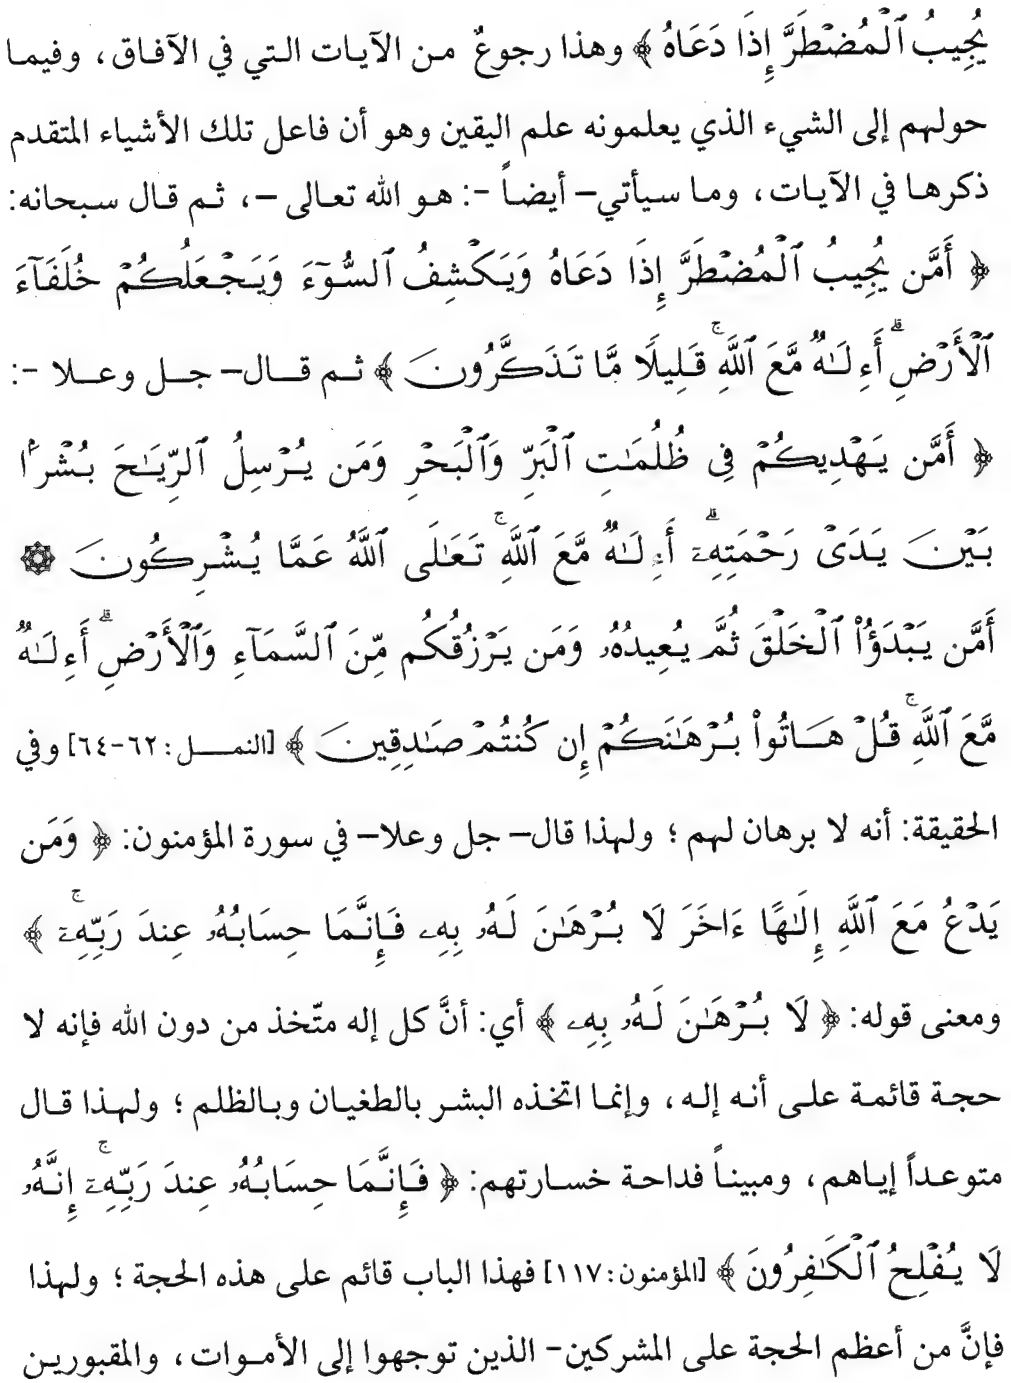 يُجِيبُ ٱلْمُضْطَرَّ إِذَا دَعَاهُ ﴾ وهذا رجوعٌ من الآيات التي في الآفاق، وفيما
حولهم إلى الشيء الذي يعلمونه علم اليقين وهو أن فاعل تلك الأشياء المتقدم
ذكرها في الآيات، وما سيأتي– أيضاً -: هو الله تعالى –، ثم قال سبحانه:
﴿ أَمَّن يُجِيبُ ٱلْمُضْطَرَّ إِذَا دَعَاهُ وَيَكْشِفُ ٱلسُّوٓءَ وَيَجْعَلُكُمْ خُلَفَآءَ
ٱلْأَرْضِ ۗ أَءِلَـٰهٌ مَّعَ ٱللَّهِ ۚ قَلِيلًا مَّا تَذَكَّرُونَ ﴾ ثم قال– جل وعلا -:
﴿ أَمَّن يَهْدِيكُمْ فِى ظُلُمَـٰتِ ٱلْبَرِّ وَٱلْبَحْرِ وَمَن يُرْسِلُ ٱلرِّيَـٰحَ بُشْرًۢا
بَيْنَ يَدَىْ رَحْمَتِهِۦٓ ۗ أَءِلَـٰهٌ مَّعَ ٱللَّهِ ۚ تَعَـٰلَى ٱللَّهُ عَمَّا يُشْرِكُونَ ۞
أَمَّن يَبْدَؤُا۟ ٱلْخَلْقَ ثُمَّ يُعِيدُهُۥ وَمَن يَرْزُقُكُم مِّنَ ٱلسَّمَآءِ وَٱلْأَرْضِ ۗ أَءِلَـٰهٌ
مَّعَ ٱللَّهِ ۚ قُلْ هَاتُوا۟ بُرْهَـٰنَكُمْ إِن كُنتُمْ صَـٰدِقِينَ ﴾ [النمل:٦٢-٦٤] وفي
الحقيقة: أنه لا برهان لهم ؛ ولهذا قال– جل وعلا– في سورة المؤمنون: ﴿ وَمَن
يَدْعُ مَعَ ٱللَّهِ إِلَـٰهًا ءَاخَرَ لَا بُرْهَـٰنَ لَهُۥ بِهِۦ فَإِنَّمَا حِسَابُهُۥ عِندَ رَبِّهِۦٓ ۚ ﴾
ومعنى قوله: ﴿ لَا بُرْهَـٰنَ لَهُۥ بِهِۦ ﴾ أي: أنَّ كل إله متّخذ من دون الله فإنه لا
حجة قائمة على أنه إله، وإنما اتخذه البشر بالطغيان وبالظلم ؛ ولهذا قال
متوعداً إياهم، ومبيناً فداحة خسارتهم: ﴿ فَإِنَّمَا حِسَابُهُۥ عِندَ رَبِّهِۦٓ ۚ إِنَّهُۥ
لَا يُفْلِحُ ٱلْكَـٰفِرُونَ ﴾ [المؤمنون:١١٧] فهذا الباب قائم على هذه الحجة ؛ ولهذا
فإنَّ من أعظم الحجة على المشركين– الذين توجهوا إلى الأموات، والمقبورين